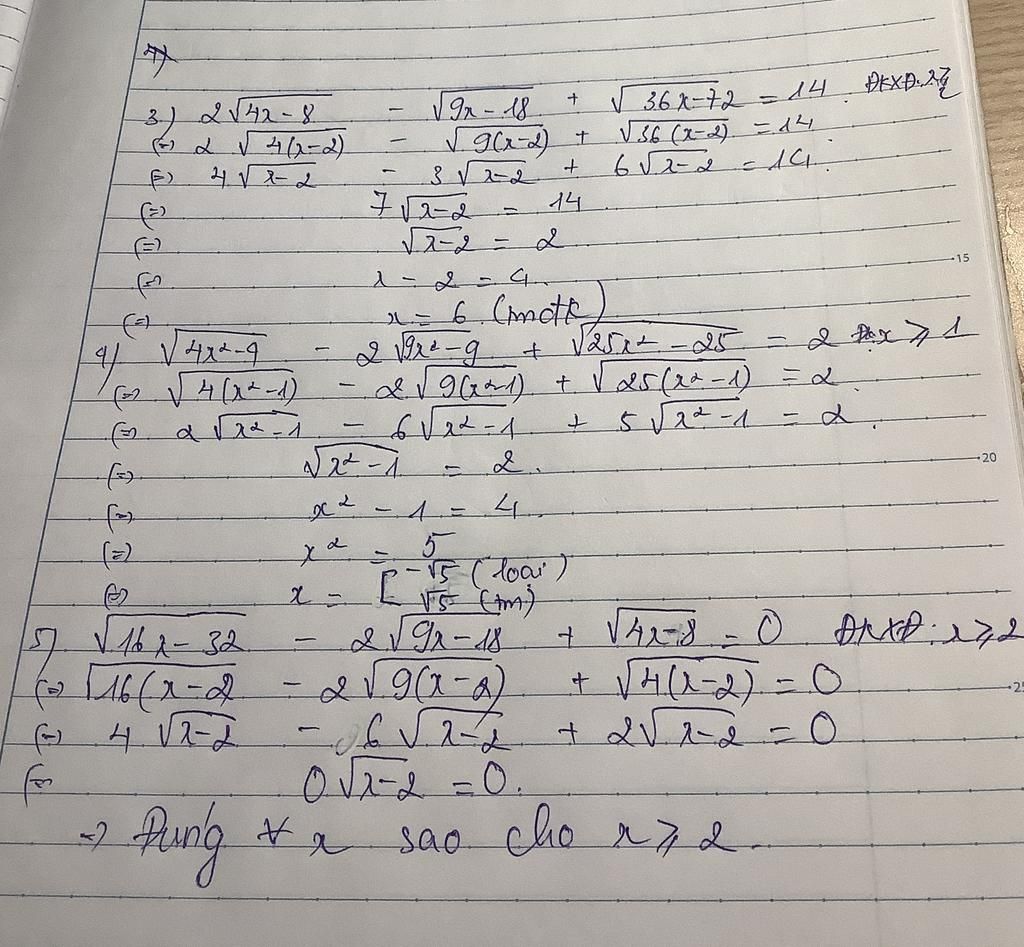 3) 2√(4x-8) - √(9x-18) + √(36x-72) = 14. ĐKXĐ: x ≥ 2
(=) 2 √(4(x-2)) - √(9(x-2)) + √(36(x-2)) = 14
(=) 4√(x-2) - 3√(x-2) + 6√(x-2) = 14.
(=) 7√(x-2) = 14
(=) √(x-2) = 2
(=) x - 2 = 4.
15
(=) x = 6 (tmđk)
4) √(4x²-9) - 2√(9x²-9) + √(25x²-25) = 2 x ≥ 1
(=) √(4(x²-1)) - 2√(9(x²-1)) + √(25(x²-1)) = 2.
(=) 2√(x²-1) - 6√(x²-1) + 5√(x²-1) = 2.
(=) √(x²-1) = 2.
20
(=) x² - 1 = 4.
(=) x² = 5
(=) x = [ -√5 (loại)
√5 (tm)
5) √(16x-32) - 2√(9x-18) + √(4x-8) = 0 ĐKXĐ: x ≥ 2
(=) √(16(x-2) - 2√(9(x-2)) + √(4(x-2)) = 0
25
(=) 4√(x-2) - 6√(x-2) + 2√(x-2) = 0
(=) 0√(x-2) = 0.
=> Đúng ∀ x sao cho x ≥ 2.